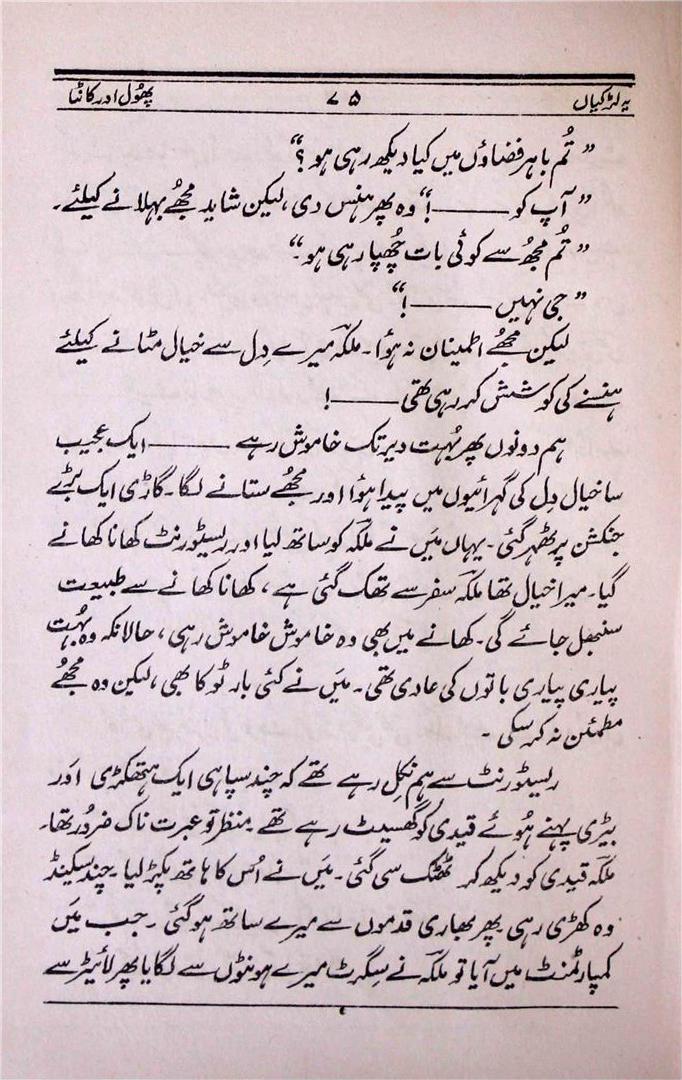 یہ لڑکیاں ۷۵ پھُول اور کانٹا
” تُم باہر فضاؤں میں کیا دیکھ رہی ہو ؟“
” آپ کو ——— !“ وہ پھر ہنس دی ، لیکن شاید مجھُے بہلانے کیلئے ۔
” تُم مجھُ سے کوئی بات چھُپا رہی ہو ۔“
” جی نہیں ——— !“
لیکن مجھُے اطمینان نہ ہوُا ۔ ملکہ میرے دِل سے خیال مٹانے کیلئے
ہنسنے کی کوشش کر رہی تھی ——— !
ہم دونوں پھر بہُت دیر تک خاموش رہے ——— ایک عجیب
سا خیال دِل کی گہرائیوں میں پیدا ہوُا اور مجھُے ستانے لگا ۔ گاڑی ایک بڑے
جنکشن پر ٹھہر گئی ۔ یہاں میَں نے ملکہ کو ساتھ لیا اور ریسٹورنٹ کھانا کھانے
گیا ۔ میرا خیال تھا ملکہ سفر سے تھک گئی ہے ، کھانا کھانے سے طبیعت
سنبھل جائے گی ۔ کھانے میں بھی وہ خاموش خاموش رہی ، حالانکہ وہ بہُت
پیاری پیاری باتوں کی عادی تھی ۔ میَں نے کئی بار ٹوکا بھی ، لیکن وہ مجھُے
مطمئن نہ کر سکی ۔
ریسٹورنٹ سے ہم نکل رہے تھے کہ چند سپاہی ایک ہتھکڑی اور
بیڑی پہنے ہُوئے قیدی کو گھسیٹ رہے تھے ۔ منظر تو عبرت ناک ضرُور تھا ۔
ملکہ قیدی کو دیکھ کر ٹھٹک سی گئی ۔ میَں نے اُس کا ہاتھ پکڑ لیا ۔ چند سیکینڈ
وہ کھڑی رہی پھر بھاری قدموں سے میرے ساتھ ہو گئی ۔ جب میَں
کمپارٹمنٹ میں آیا تو ملکہ نے سِگرٹ میرے ہونٹوں سے لگایا پھر لائیٹر سے